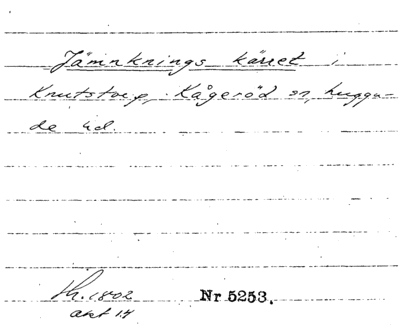 Jämnknings kärret i
Knutstorp, Kågeröd sn, Luggu-
de hd.
Lh. 1802
akt 14
Nr 5253.